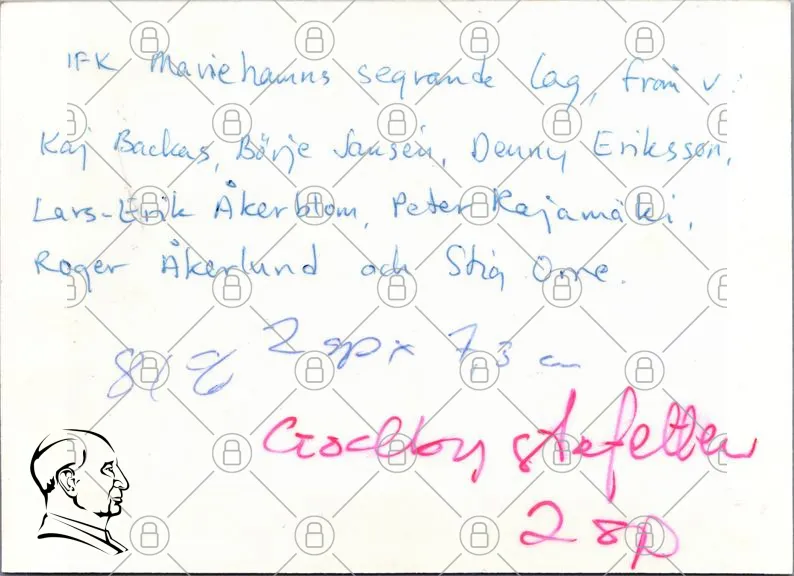 IFK Mariehamns segrande lag, från v:
Kaj Backas, Börje Jansén, Denny Eriksson,
Lars-Erik Åkerblom, Peter Rajamäki,
Roger Åkerlund och Stig Orre.
2 sp x 7,3 cm
Godbystafetten
2 sp